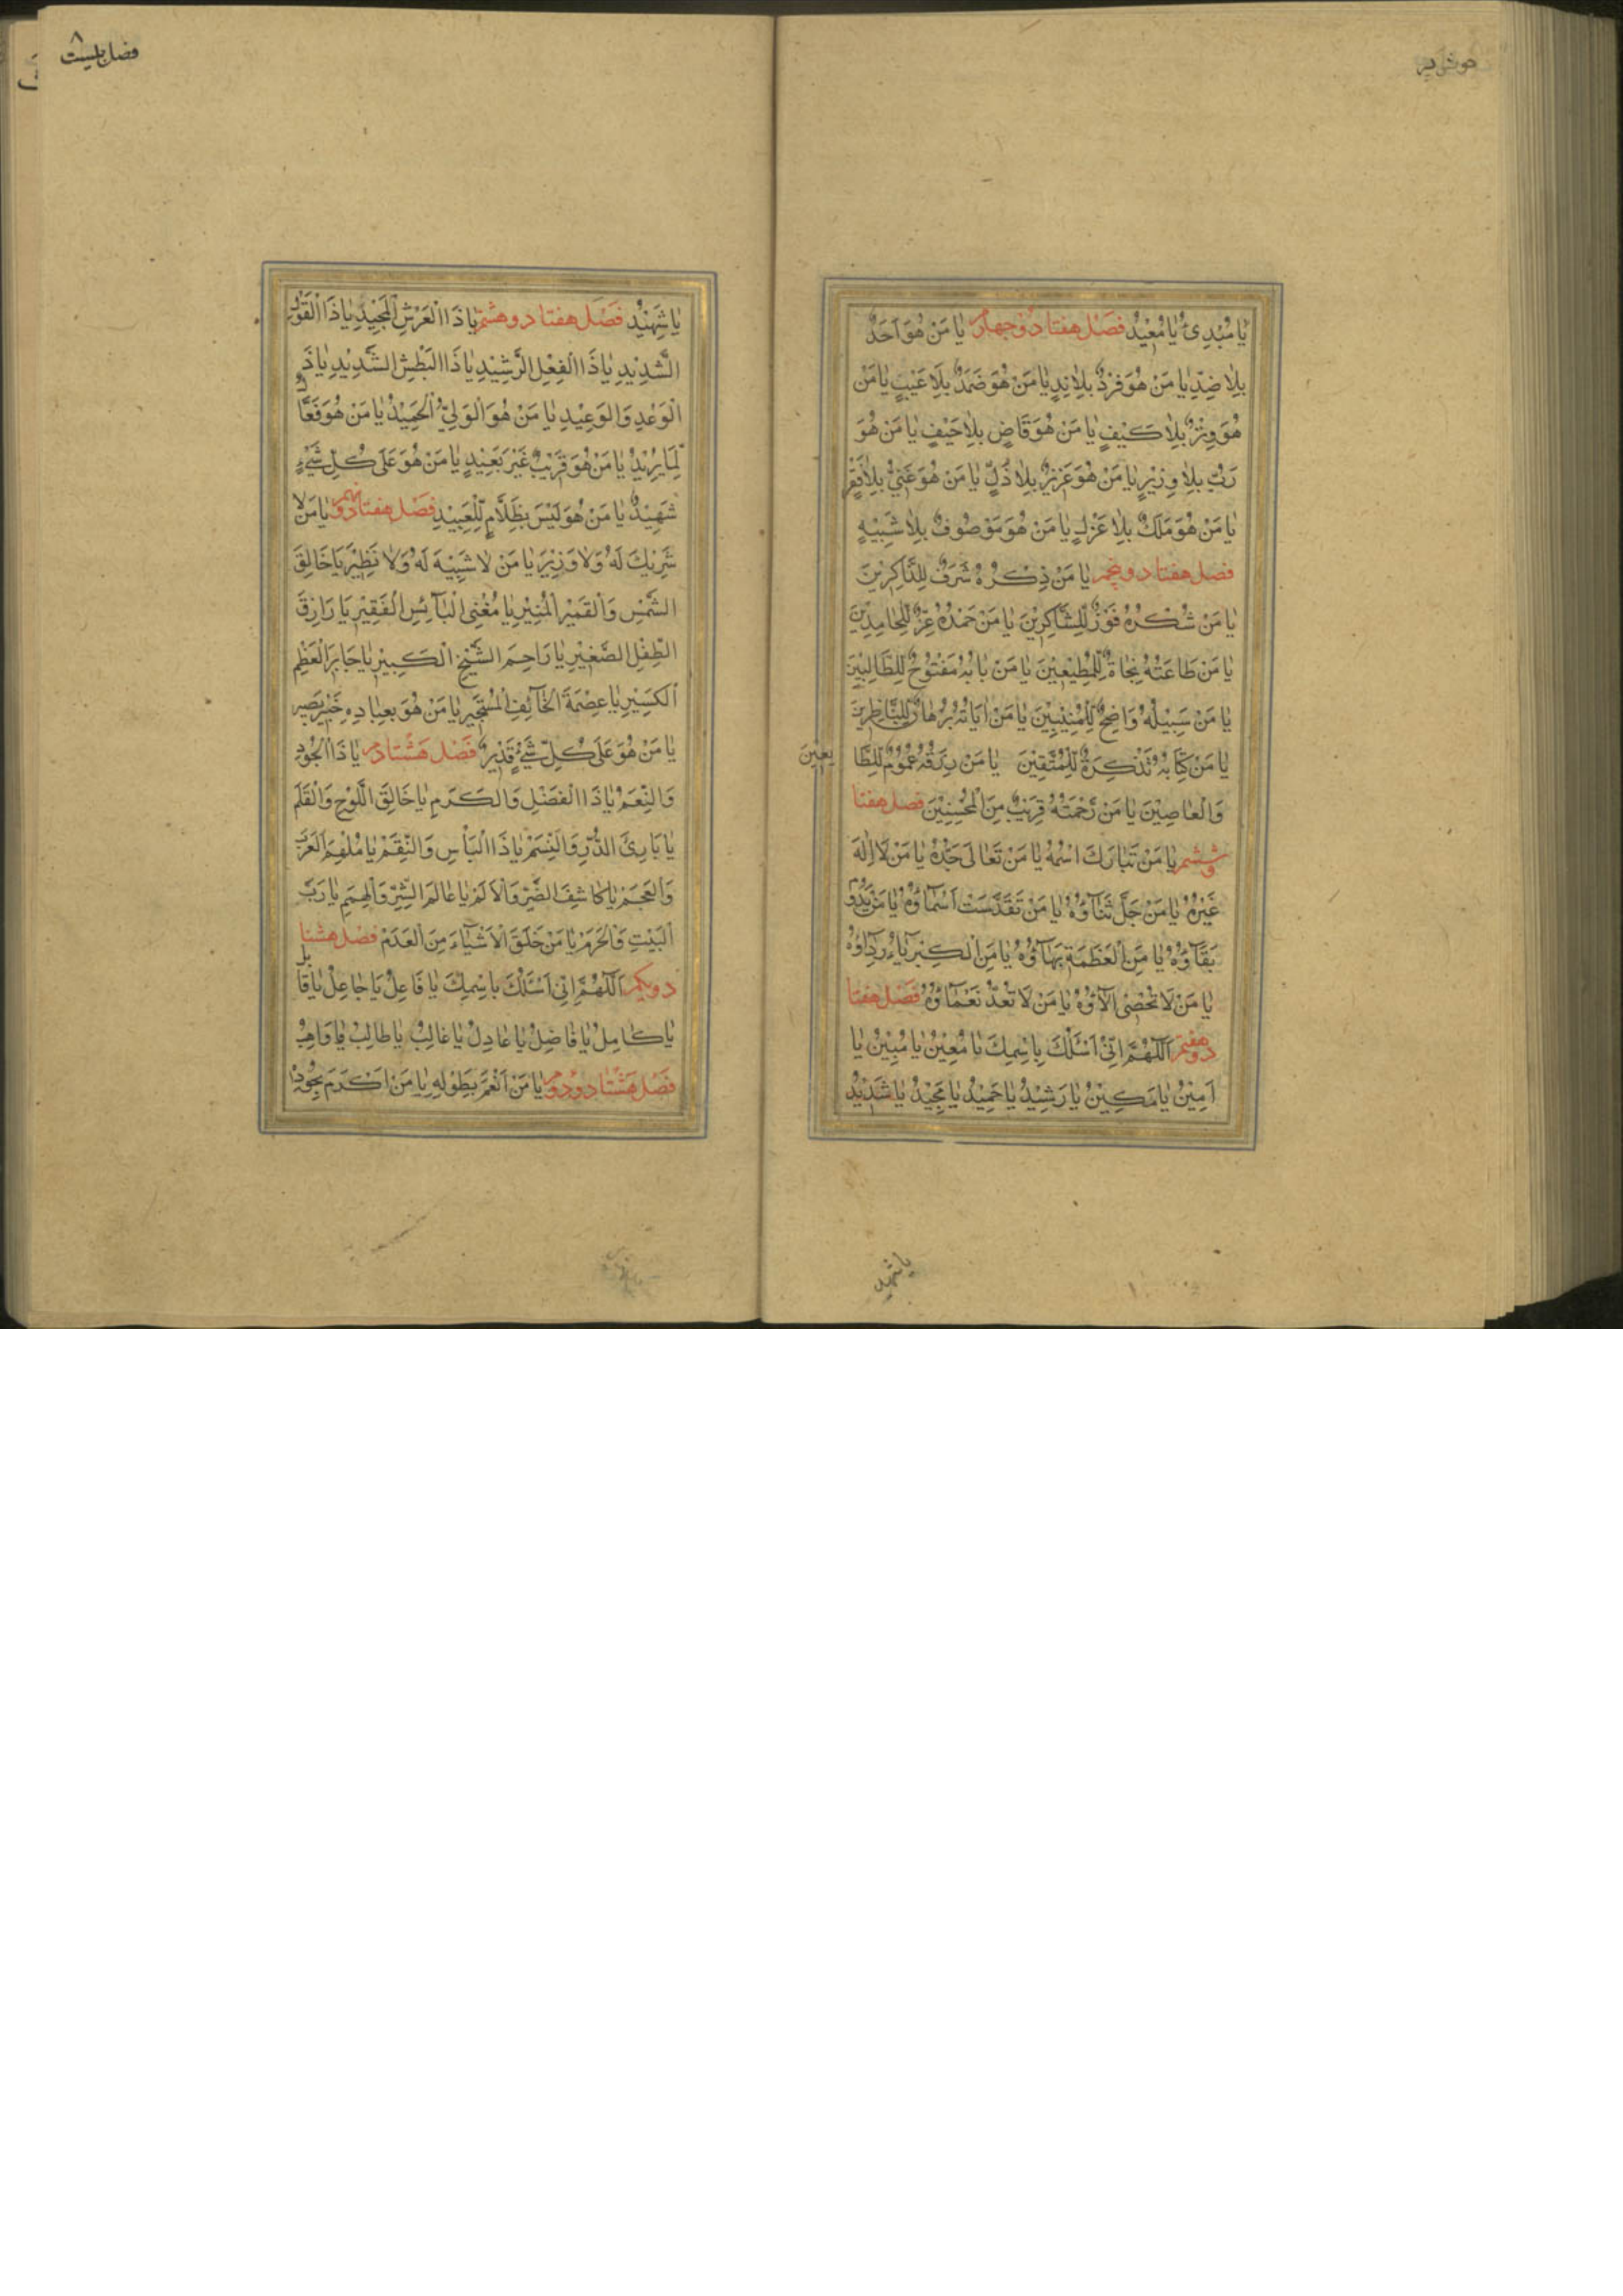 يَا مُبْدِئُ يَا مُعِيدُ فصل هفتاد و چهارم يَا مَنْ هُوَ اَحَدٌ
بِلَا ضِدٍّ يَا مَنْ هُوَ فَرْدٌ بِلَا نِدٍّ يَا مَنْ هُوَ صَمَدٌ بِلَا عَيْبٍ يَا مَنْ
هُوَ وِتْرٌ بِلَا كَيْفٍ يَا مَنْ هُوَ قَاضٍ بِلَا حَيْفٍ يَا مَنْ هُوَ
رَبٌّ بِلَا وَزِيْرٍ يَا مَنْ هُوَ عَزِيزٌ بِلَا ذُلٍّ يَا مَنْ هُوَ غَنِيٌّ بِلَا فَقْرٍ
يَا مَنْ هُوَ مَلَكٌ بِلَا عَزْلٍ يَا مَنْ هُوَ مَوْصُوفٌ بِلَا شَبِيْهٍ
فصل هفتاد و پنجم يَا مَنْ ذِكْرُهُ شَرَفٌ لِلذَّاكِرِيْنَ
يَا مَنْ شُكْرُهُ فَوْزٌ لِلشَّاكِرِيْنَ يَا مَنْ حَمْدُهُ عِزٌّ لِلْحَامِدِيْنَ
يَا مَنْ طَاعَتُهُ نَجَاةٌ لِلْمُطِيْعِيْنَ يَا مَنْ بَابُهُ مَفْتُوْحٌ لِلطَّالِبِيْنَ
يَا مَنْ سَبِيْلُهُ وَاضِحٌ لِلْمُنِيْبِيْنَ يَا مَنْ اٰيَاتُهُ بُرْهَانٌ لِلنَّاظِرِيْنَ
يَا مَنْ كِتَابُهُ تَذْكِرَةٌ لِلْمُتَّقِيْنَ يَا مَنْ رِزْقُهُ عُمُوْمٌ لِلطَّا يِعِيْنَ
وَالْعَاصِيْنَ يَا مَنْ رَحْمَتُهُ قَرِيْبٌ مِنَ الْمُحْسِنِيْنَ فصل هفتا
د و ششم يَا مَنْ تَبَارَكَ اسْمُهُ يَا مَنْ تَعَالَى جَدُّهُ يَا مَنْ لَا اِلٰهَ
غَيْرُهُ يَا مَنْ جَلَّ ثَنَاؤُهُ يَا مَنْ تَقَدَّسَتْ اَسْمَاؤُهُ يَا مَنْ يَدُوْمُ
بَقَاؤُهُ يَا مَنِ الْعَظَمَةُ بَهَاؤُهُ يَا مَنِ الْكِبْرِيَاءُ رِدَاؤُهُ
يَا مَنْ لَا تُحْصٰى اٰلَاؤُهُ يَا مَنْ لَا تُعَدُّ نَعْمَاؤُهُ فصل هفتا
د و هفتم اَللّٰهُمَّ اِنِّيْ اَسْئَلُكَ بِاسْمِكَ يَا مُعِيْنُ يَا مُبِيْنُ يَا
اَمِيْنُ يَا مَكِيْنُ يَا رَشِيْدُ يَا حَمِيْدُ يَا مَجِيْدُ يَا شَدِيْدُ
يا شهيد
فصل بیست
۸
يَا شَهِيْدُ فصل هفتاد و هشتم يَا ذَا الْعَرْشِ الْمَجِيْدِ يَا ذَا الْقَوْلِ
الشَّدِيْدِ يَا ذَا الْفِعْلِ الرَّشِيْدِ يَا ذَا الْبَطْشِ الشَّدِيْدِ يَا ذَا
الْوَعْدِ وَالْوَعِيْدِ يَا مَنْ هُوَ الْوَلِيُّ الْحَمِيْدُ يَا مَنْ هُوَ فَعَّالٌ
لِمَا يُرِيْدُ يَا مَنْ هُوَ قَرِيْبٌ غَيْرَ بَعِيْدٍ يَا مَنْ هُوَ عَلٰى كُلِّ شَيْءٍ
شَهِيْدٌ يَا مَنْ هُوَ لَيْسَ بِظَلَّامٍ لِلْعَبِيْدِ فصل هفتاد و نهم يَا مَنْ لَا
شَرِيْكَ لَهُ وَلَا وَزِيْرَ يَا مَنْ لَا شَبِيْهَ لَهُ وَلَا نَظِيْرَ يَا خَالِقَ
الشَّمْسِ وَالْقَمَرِ الْمُنِيْرِ يَا مُغْنِيَ الْبَائِسِ الْفَقِيْرِ يَا رَازِقَ
الطِّفْلِ الصَّغِيْرِ يَا رَاحِمَ الشَّيْخِ الْكَبِيْرِ يَا جَابِرَ الْعَظْمِ
الْكَسِيْرِ يَا عِصْمَةَ الْخَائِفِ الْمُسْتَجِيْرِ يَا مَنْ هُوَ بِعِبَادِهِ خَبِيْرٌ بَصِيْرٌ
يَا مَنْ هُوَ عَلٰى كُلِّ شَيْءٍ قَدِيْرٌ فصل هشتادم يَا ذَا الْجُوْدِ
وَالنِّعَمِ يَا ذَا الْفَضْلِ وَالْكَرَمِ يَا خَالِقَ اللَّوْحِ وَالْقَلَمِ
يَا بَارِئَ الذَّرِّ وَالنَّسَمِ يَا ذَا الْبَأْسِ وَالنِّقَمِ يَا مُلْهِمَ الْعَرَبِ
وَالْعَجَمِ يَا كَاشِفَ الضُّرِّ وَالْاَلَمِ يَا عَالِمَ السِّرِّ وَالْهِمَمِ يَا رَبَّ
الْبَيْتِ وَالْحَرَمِ يَا مَنْ خَلَقَ الْاَشْيَاءَ مِنَ الْعَدَمِ فصل هشتا
د و یکم اَللّٰهُمَّ اِنِّي اَسْئَلُكَ بِاسْمِكَ يَا فَاعِلُ يَا جَاعِلُ يَا قَابِلُ
يَا كَامِلُ يَا فَاضِلُ يَا عَادِلُ يَا غَالِبُ يَا طَالِبُ يَا وَاهِبُ
فصل هشتاد و دوم يَا مَنْ اَنْعَمَ بِطَوْلِهِ يَا مَنْ اَكْرَمَ بِجُوْدِهِ